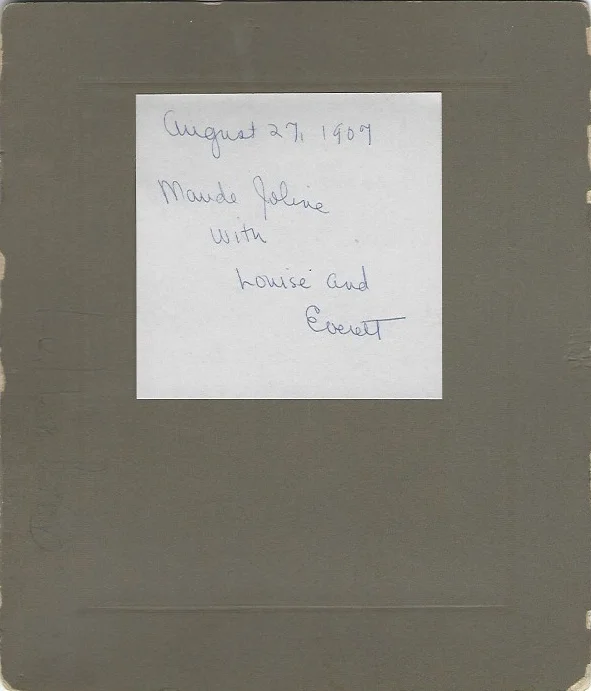 August 27, 1907
Maude Joline
with
Louise and
Everett